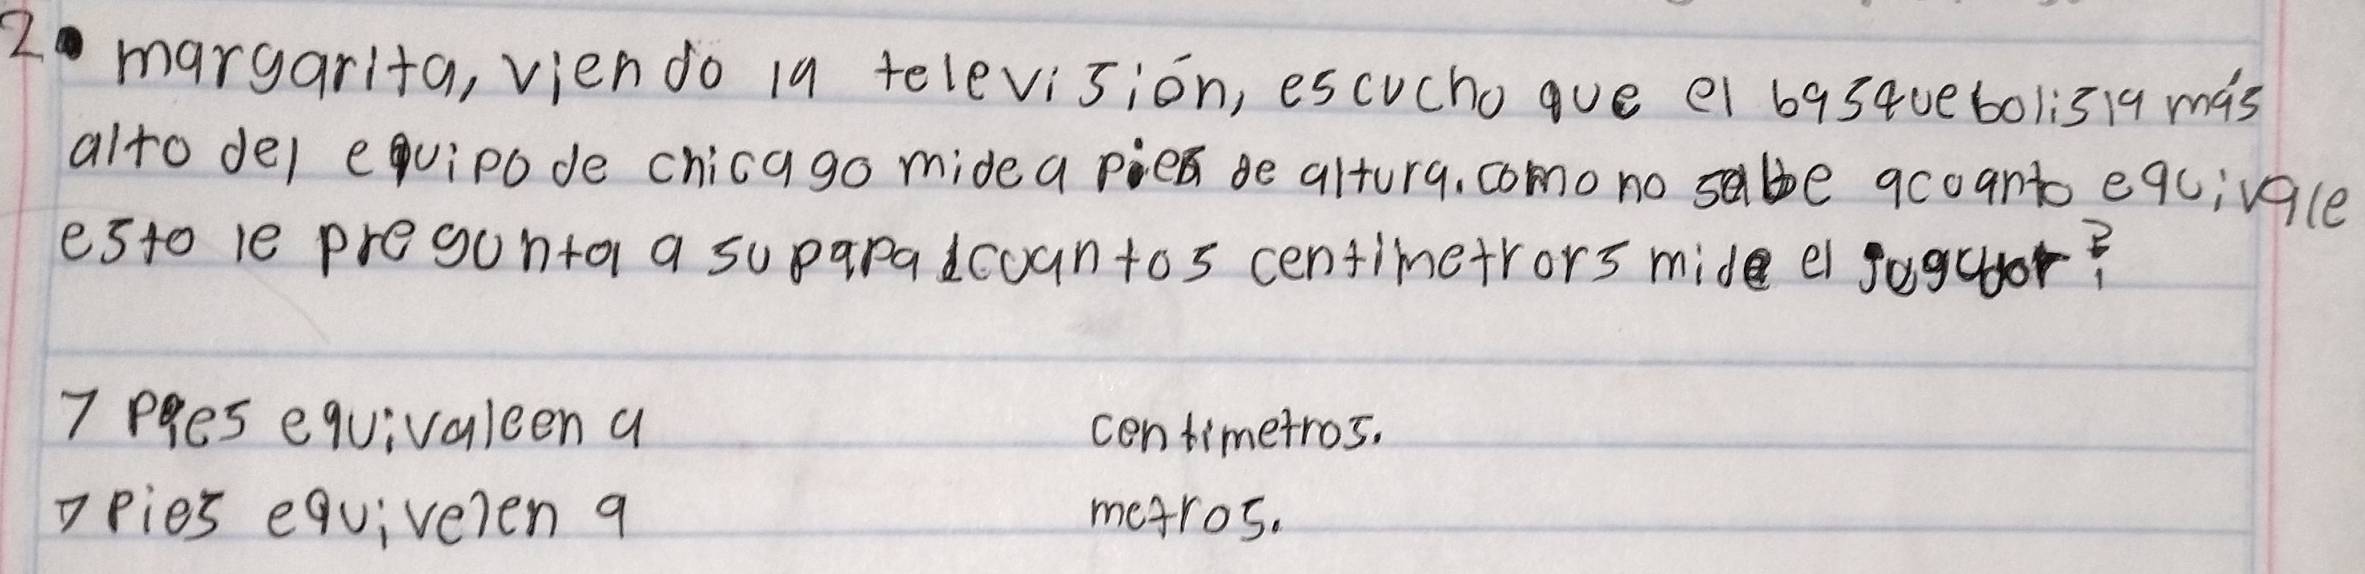 2. margarita, viendo la televisión, escucho que el basquebolisla más
alto del equipo de chicago mide a pies de altura. como no sabe acuanto equivale
esto le pregunta a su papa ¿cuantos centimetrors mide el jugador?
7 pies equivaleen a centimetros.
7 Pies equivelen a metros.